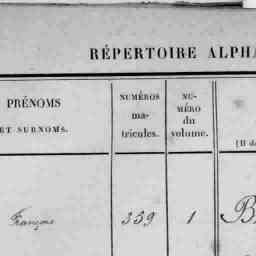 RÉPERTOIRE ALPHA
PRÉNOMS
ET SURNOMS.
NUMÉROS
ma-
tricules.
NU-
MÉRO
du
volume.
(Il d
François
359
1
B